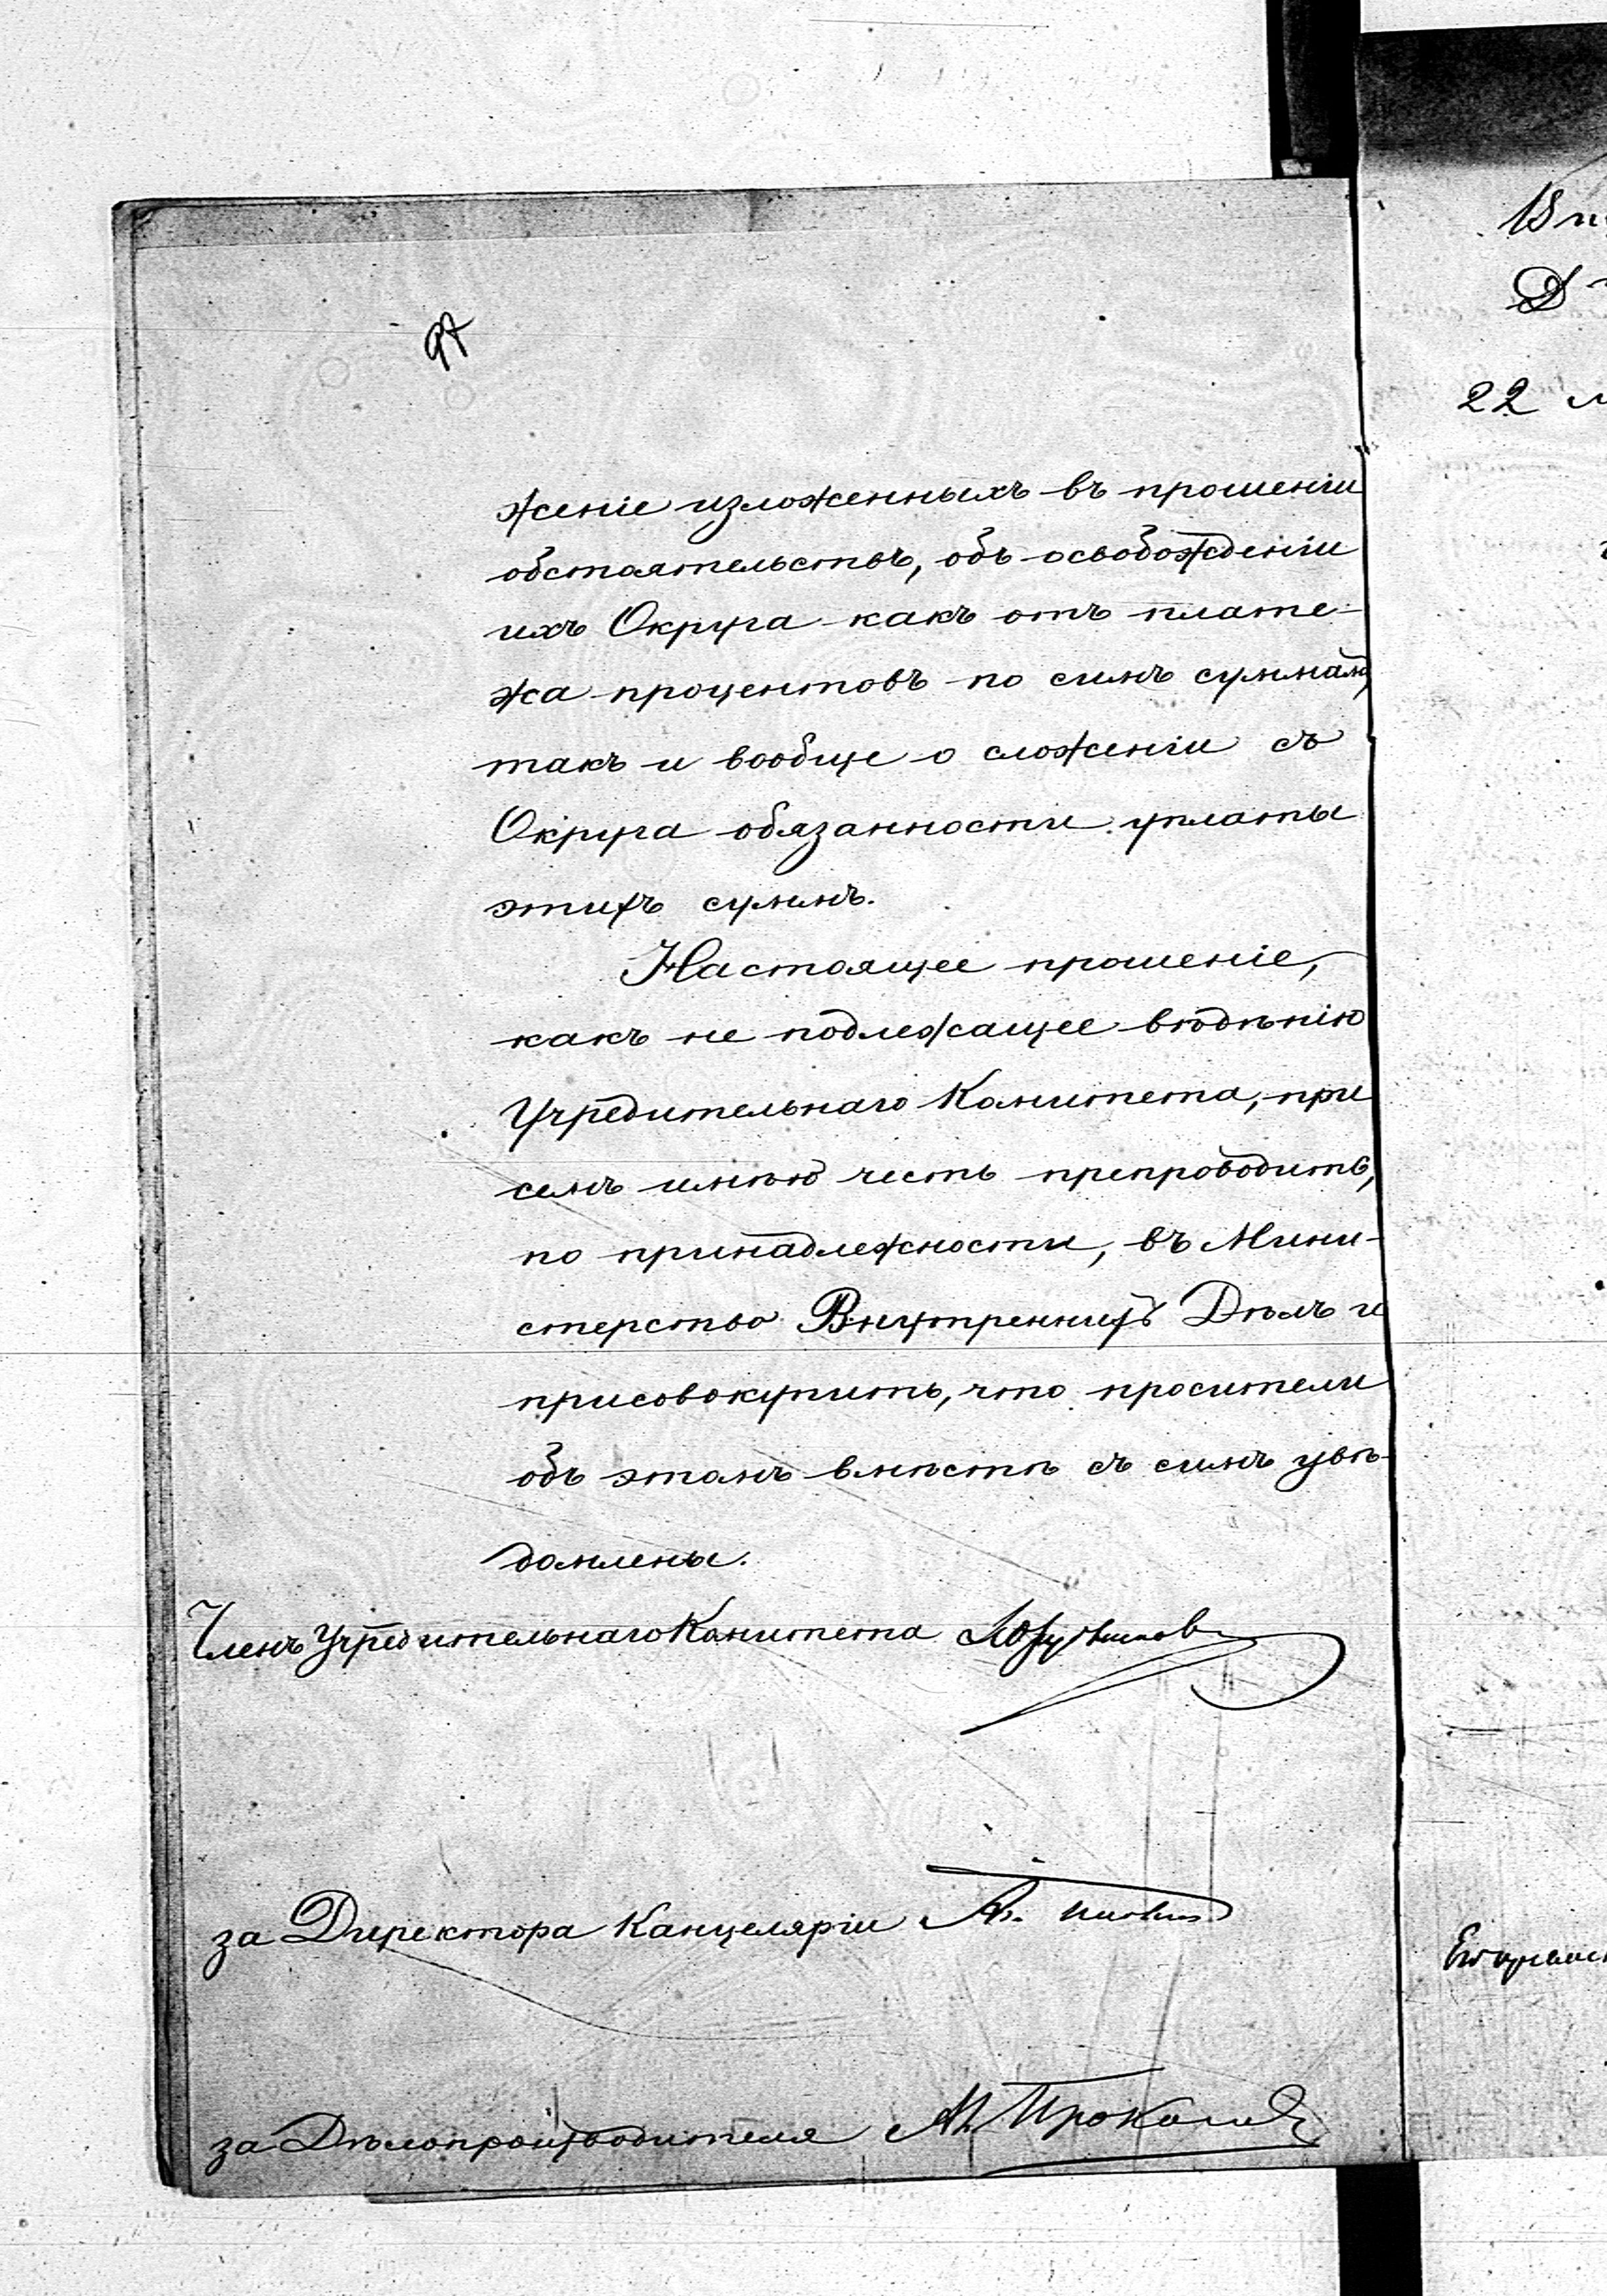 97
женіе изложенныхъ въ прошеніи
обстоятельствъ, объ освобожденіи
ихъ Округа какъ отъ плате-
жа процентовъ по симъ суммамъ,
такъ и вообще о сложеніи съ
Округа обязанности уплаты
этихъ суммъ.
Настоящее прошеніе,
какъ не подлежащее вѣдѣнію
Учредительнаго Комитета, при
семъ имѣю честь препроводить,
по принадлежности, въ Мини-
стерство Внутреннихъ Дѣлъ и
присовокупить, что просители
объ этомъ вмѣстѣ съ симъ увѣ-
домлены.
Членъ Учредительнаго Комитета
за Директора Канцеляріи
за Дѣлопроизводителя
22